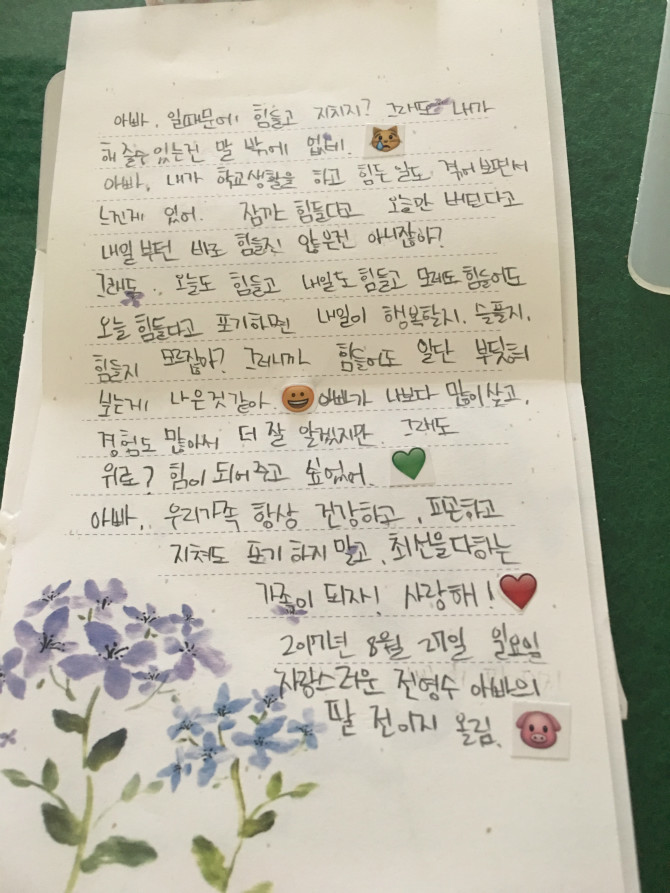 아빠, 일때문에 힘들고 지치지? 그래도 내가
해줄수있는건 말 밖에 없네.
아빠, 내가 학교생활을 하고 힘든 날도 겪어보면서
느낀게 있어. 잠깐 힘들다고 오늘만 버틴다고
내일부턴 바로 힘들진 않은건 아니잖아?
그래도, 오늘도 힘들고 내일도 힘들고 모레도 힘들어도
오늘 힘들다고 포기하면 내일이 행복할지, 슬플지,
힘들지 모르잖아? 그러니까 힘들어도 일단 부딪혀
보는게 나은것같아. 아빠가 나보다 많이살고,
경험도 많아서 더 잘 알겠지만 그래도
위로? 힘이 되어주고 싶었어.
아빠, 우리가족 항상 건강하고, 피곤하고
지쳐도 포기 하지 말고, 최선을다하는
가족이 되자! 사랑해!
2017년 8월 27일 일요일
자랑스러운 전영수 아빠의
딸 전이지 올림.